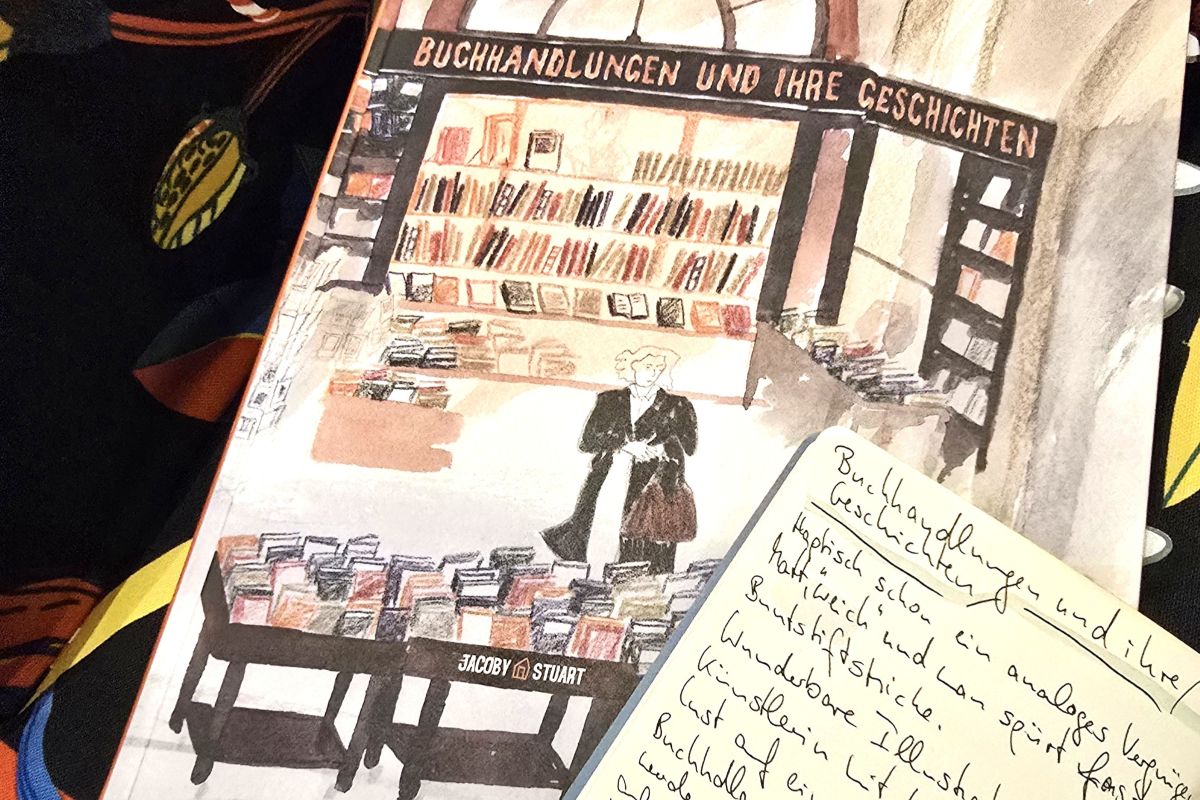 BUCHHANDLUNGEN UND IHRE GESCHICHTEN
JACOBY STUART
Buchhandlungen und ihre
Geschichten
Haptisch schon ein analoges Vergnügen
Matt, "weich" und man spürt fast
Buntstiftstriche.
Wunderbare
Künstlerin mit
Lust auf